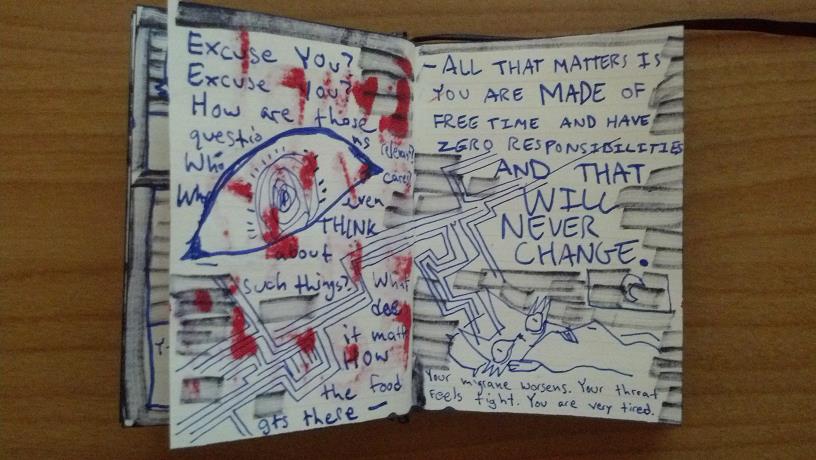 Excuse You?
Excuse You?
How are those
questio ns relevant?
Who cares?
Why even
THINK
about
such things? What
does
it matt
HOW
the food
gts there —
— ALL THAT MATTERS IS
YOU ARE MADE OF
FREE TIME AND HAVE
ZERO RESPONSIBILITIES
AND THAT
WILL
NEVER
CHANGE.
Your migrane worsens. Your throat
Feels tight. You are very tired.